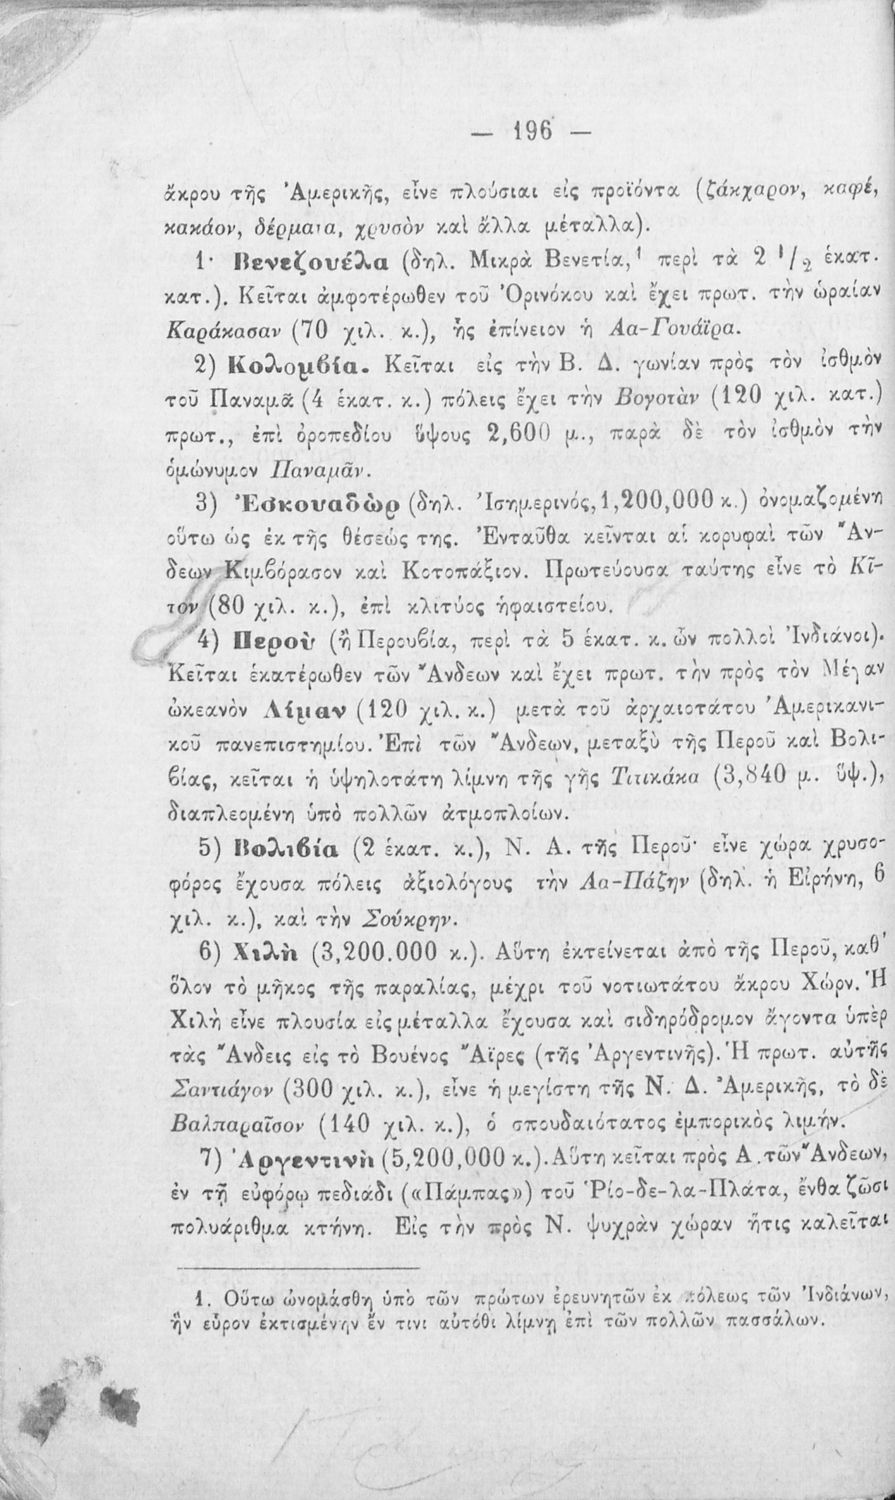 — 196 —
ἄκρου τῆς Ἀμερικῆς, εἶνε πλούσιαι εἰς προϊόντα (ζάκχαρον, καφέ,
κακάον, δέρματα, χρυσὸν καὶ ἄλλα μέταλλα).
1· Βενεζουέλα (δηλ. Μικρὰ Βενετία,¹ περὶ τὰ 2 ¹/₂ ἑκατ.
κατ.). Κεῖται ἀμφοτέρωθεν τοῦ Ὀρινόκου καὶ ἔχει πρωτ. τὴν ὡραίαν
Καράκασαν (70 χιλ. κ.), ἧς ἐπίνειον ἡ Λα-Γουάϊρα.
2) Κολομβία. Κεῖται εἰς τὴν Β. Δ. γωνίαν πρὸς τὸν ἰσθμὸν
τοῦ Παναμᾶ (4 ἑκατ. κ.) πόλεις ἔχει τὴν Βογοτὰν (120 χιλ. κατ.)
πρωτ., ἐπὶ ὀροπεδίου ὕψους 2,600 μ., παρὰ δὲ τὸν ἰσθμὸν τὴν
ὁμώνυμον Παναμᾶν.
3) Ἐσκουαδὼρ (δηλ. Ἰσημερινός, 1,200,000 κ.) ὀνομαζομένη
οὕτω ὡς ἐκ τῆς θέσεώς της. Ἐνταῦθα κεῖνται αἱ κορυφαὶ τῶν Ἄν-
δεων Κιμβόρασον καὶ Κοτοπάξιον. Πρωτεύουσα ταύτης εἶνε τὸ Κῖ-
τον (80 χιλ. κ.), ἐπὶ κλιτύος ἡφαιστείου.
4) Περοὺ (ἢ Περουβία, περὶ τὰ 5 ἑκατ. κ. ὧν πολλοὶ Ἰνδιάνοι).
Κεῖται ἑκατέρωθεν τῶν Ἄνδεων καὶ ἔχει πρωτ. τὴν πρὸς τὸν Μέγαν
ὠκεανὸν Λίμαν (120 χιλ. κ.) μετὰ τοῦ ἀρχαιοτάτου Ἀμερικανι-
κοῦ πανεπιστημίου. Ἐπὶ τῶν Ἄνδεων, μεταξὺ τῆς Περοῦ καὶ Βολι-
βίας, κεῖται ἡ ὑψηλοτάτη λίμνη τῆς γῆς Τιτικάκα (3,840 μ. ὕψ.),
διαπλεομένη ὑπὸ πολλῶν ἀτμοπλοίων.
5) Βολιβία (2 ἑκατ. κ.), Ν. Α. τῆς Περοῦ· εἶνε χώρα χρυσο-
φόρος ἔχουσα πόλεις ἀξιολόγους τὴν Λα-Πάζην (δηλ. ἡ Εἰρήνη, 6
χιλ. κ.), καὶ τὴν Σούκρην.
6) Χιλὴ (3,200.000 κ.). Αὕτη ἐκτείνεται ἀπὸ τῆς Περοῦ, καθ'
ὅλον τὸ μῆκος τῆς παραλίας, μέχρι τοῦ νοτιωτάτου ἄκρου Χώρν. Ἡ
Χιλὴ εἶνε πλουσία εἰς μέταλλα ἔχουσα καὶ σιδηρόδρομον ἄγοντα ὑπὲρ
τὰς Ἄνδεις εἰς τὸ Βουένος Ἄϊρες (τῆς Ἀργεντινῆς). Ἡ πρωτ. αὐτῆς
Σαντιάγον (300 χιλ. κ.), εἶνε ἡ μεγίστη τῆς Ν. Δ. Ἀμερικῆς, τὸ δὲ
Βαλπαραῖσον (140 χιλ. κ.), ὁ σπουδαιότατος ἐμπορικὸς λιμήν.
7) Ἀργεντινὴ (5,200,000 κ.). Αὕτη κεῖται πρὸς Α. τῶν Ἄνδεων,
ἐν τῇ εὐφόρῳ πεδιάδι («Πάμπας») τοῦ Ῥίο-δε-λα-Πλάτα, ἔνθα ζῶσι
πολυάριθμα κτήνη. Εἰς τὴν πρὸς Ν. ψυχρὰν χώραν ἥτις καλεῖται
1. Οὕτω ὠνομάσθη ὑπὸ τῶν πρώτων ἐρευνητῶν ἐκ πόλεως τῶν Ἰνδιάνων,
ἣν εὗρον ἐκτισμένην ἔν τινι αὐτόθι λίμνῃ ἐπὶ τῶν πολλῶν πασσάλων.